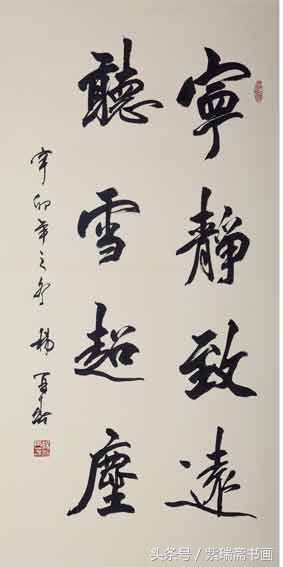 寧靜致遠
聽雪超塵
辛卯年之冬 楊
头条号 / 紫瑞斋书画